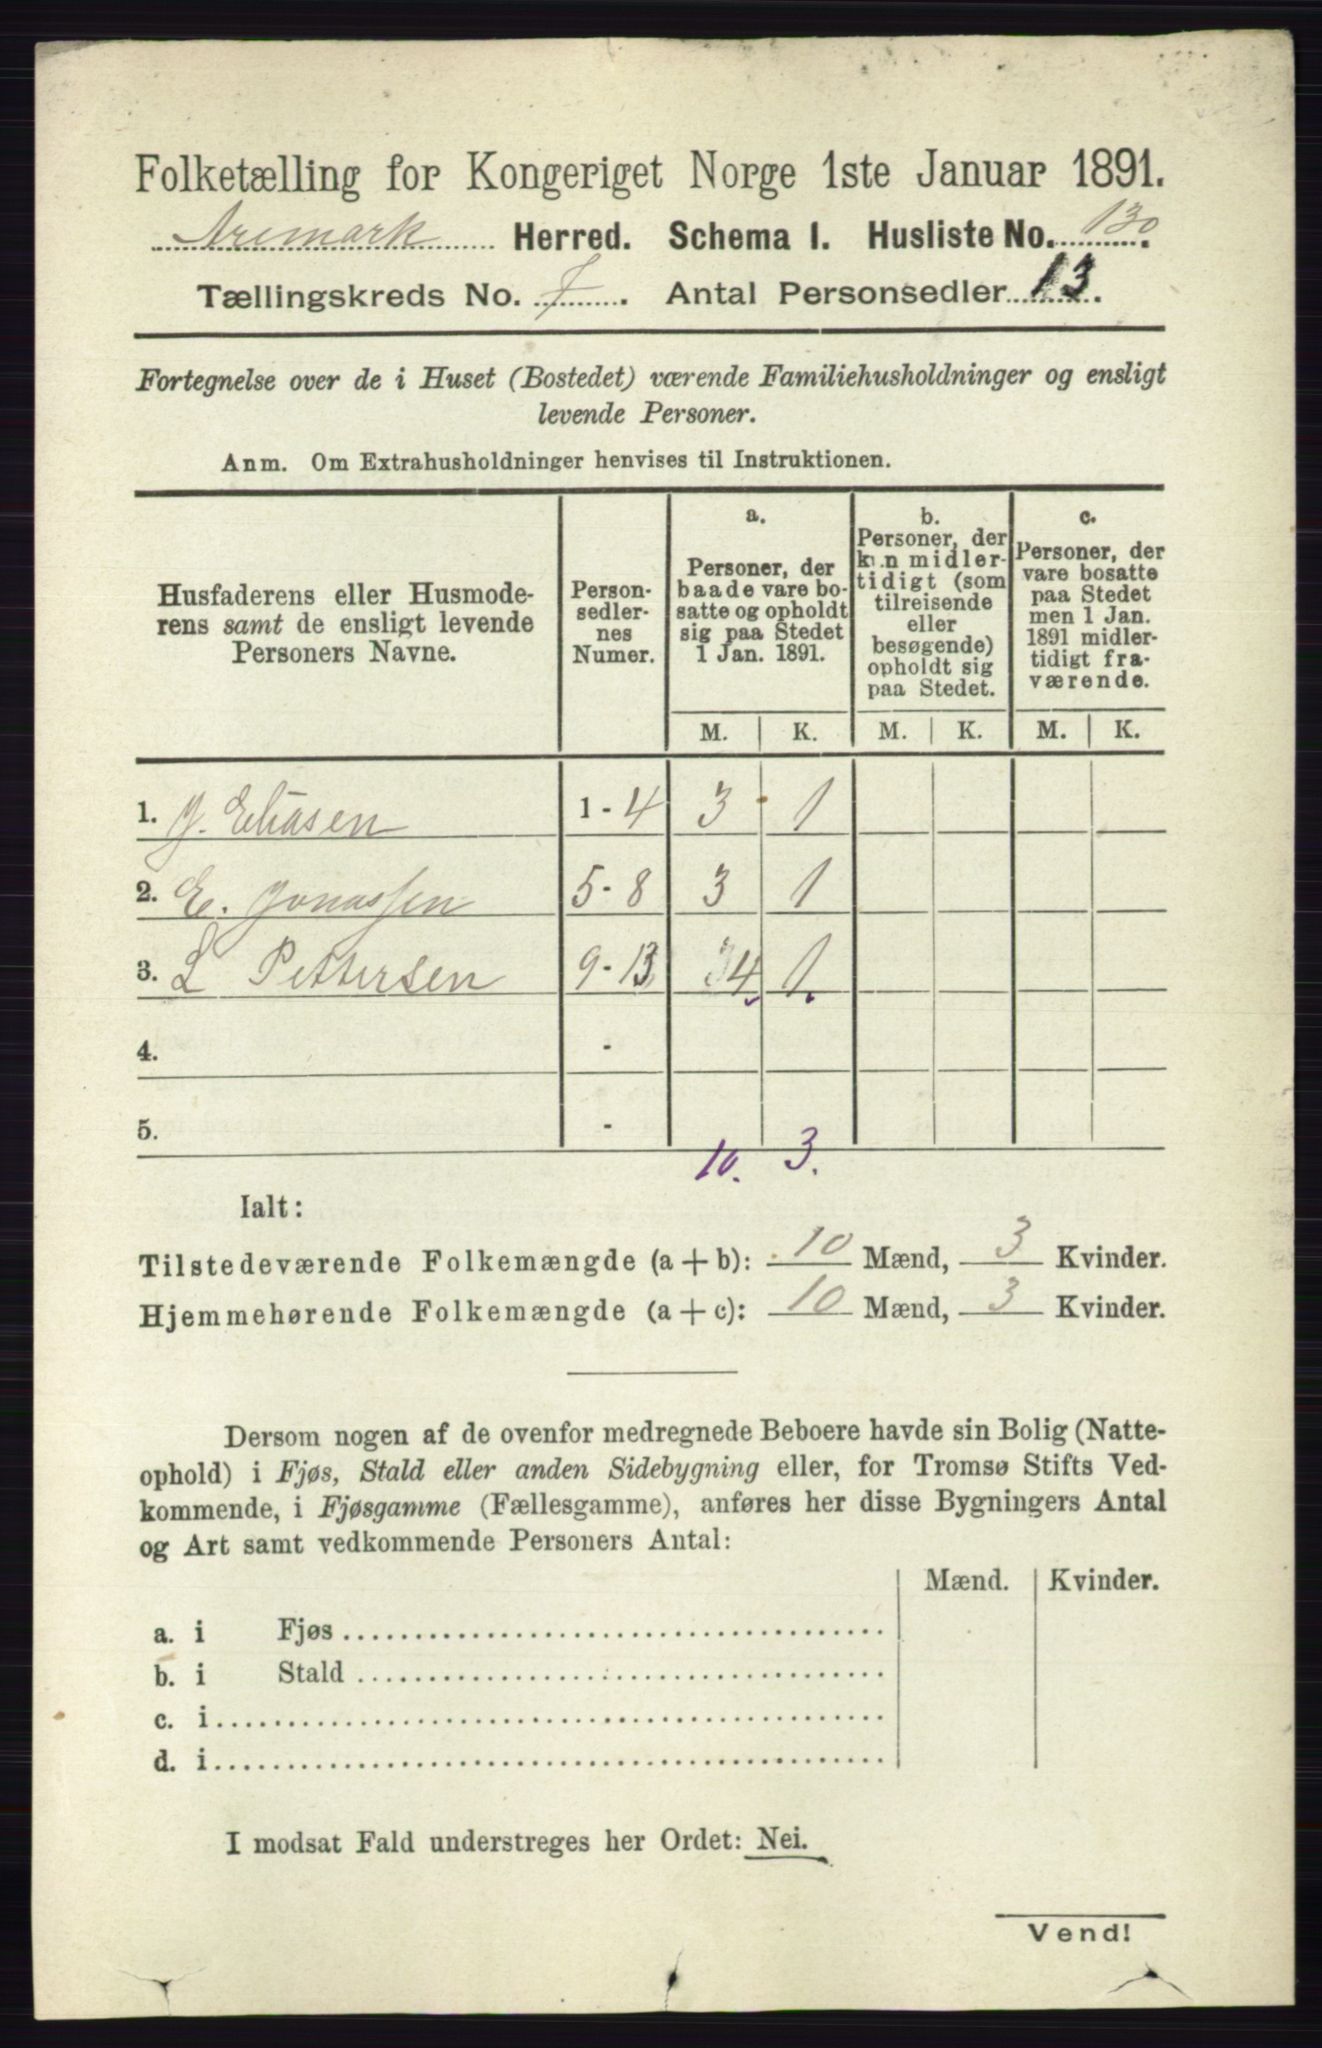 Folketælling for Kongeriget Norge 1ste Januar 1891.
Aremark Herred. Schema I. Husliste No. 130.
Tællingskreds No. 7. Antal Personsedler 13.
Fortegnelse over de i Huset (Bostedet) værende Familiehusholdninger og ensligt
levende Personer.
Anm. Om Extrahusholdninger henvises til Instruktionen.
Husfaderens eller Husmode-
rens samt de ensligt levende
Personers Navne.
Person-
sedler-
nes
Numer.
a.
Personer, der
baade vare bo-
satte og opholdt
sig paa Stedet
1 Jan. 1891.
b.
Personer, der
kun midler-
tidigt (som
tilreisende
eller
besøgende)
opholdt sig
paa Stedet.
c.
Personer, der
vare bosatte
paa Stedet
men 1 Jan.
1891 midler-
tidigt fra-
værende.
M. K. M. K. M. K.
1. J. Eliasen 1-4 3 1
2. E. Jonassen 5-8 3 1
3. L Pettersen 9-13 4 1.
4. -
5. -
10. 3.
Ialt:
Tilstedeværende Folkemængde (a+b): 10 Mænd, 3 Kvinder.
Hjemmehørende Folkemængde (a+c): 10 Mænd, 3 Kvinder.
Dersom nogen af de ovenfor medregnede Beboere havde sin Bolig (Natte-
ophold) i Fjøs, Stald eller anden Sidebygning eller, for Tromsø Stifts Ved-
kommende, i Fjøsgamme (Fællesgamme), anføres her disse Bygningers Antal
og Art samt vedkommende Personers Antal:
Mænd. Kvinder.
a. i Fjøs
b. i Stald
c. i
d. i
I modsat Fald understreges her Ordet: Nei.
Vend!